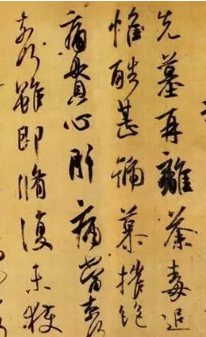 先墓再離荼毒追
惟酷甚號慕摧絕
痛貫心肝痛當奈何
奈何雖即脩復未獲